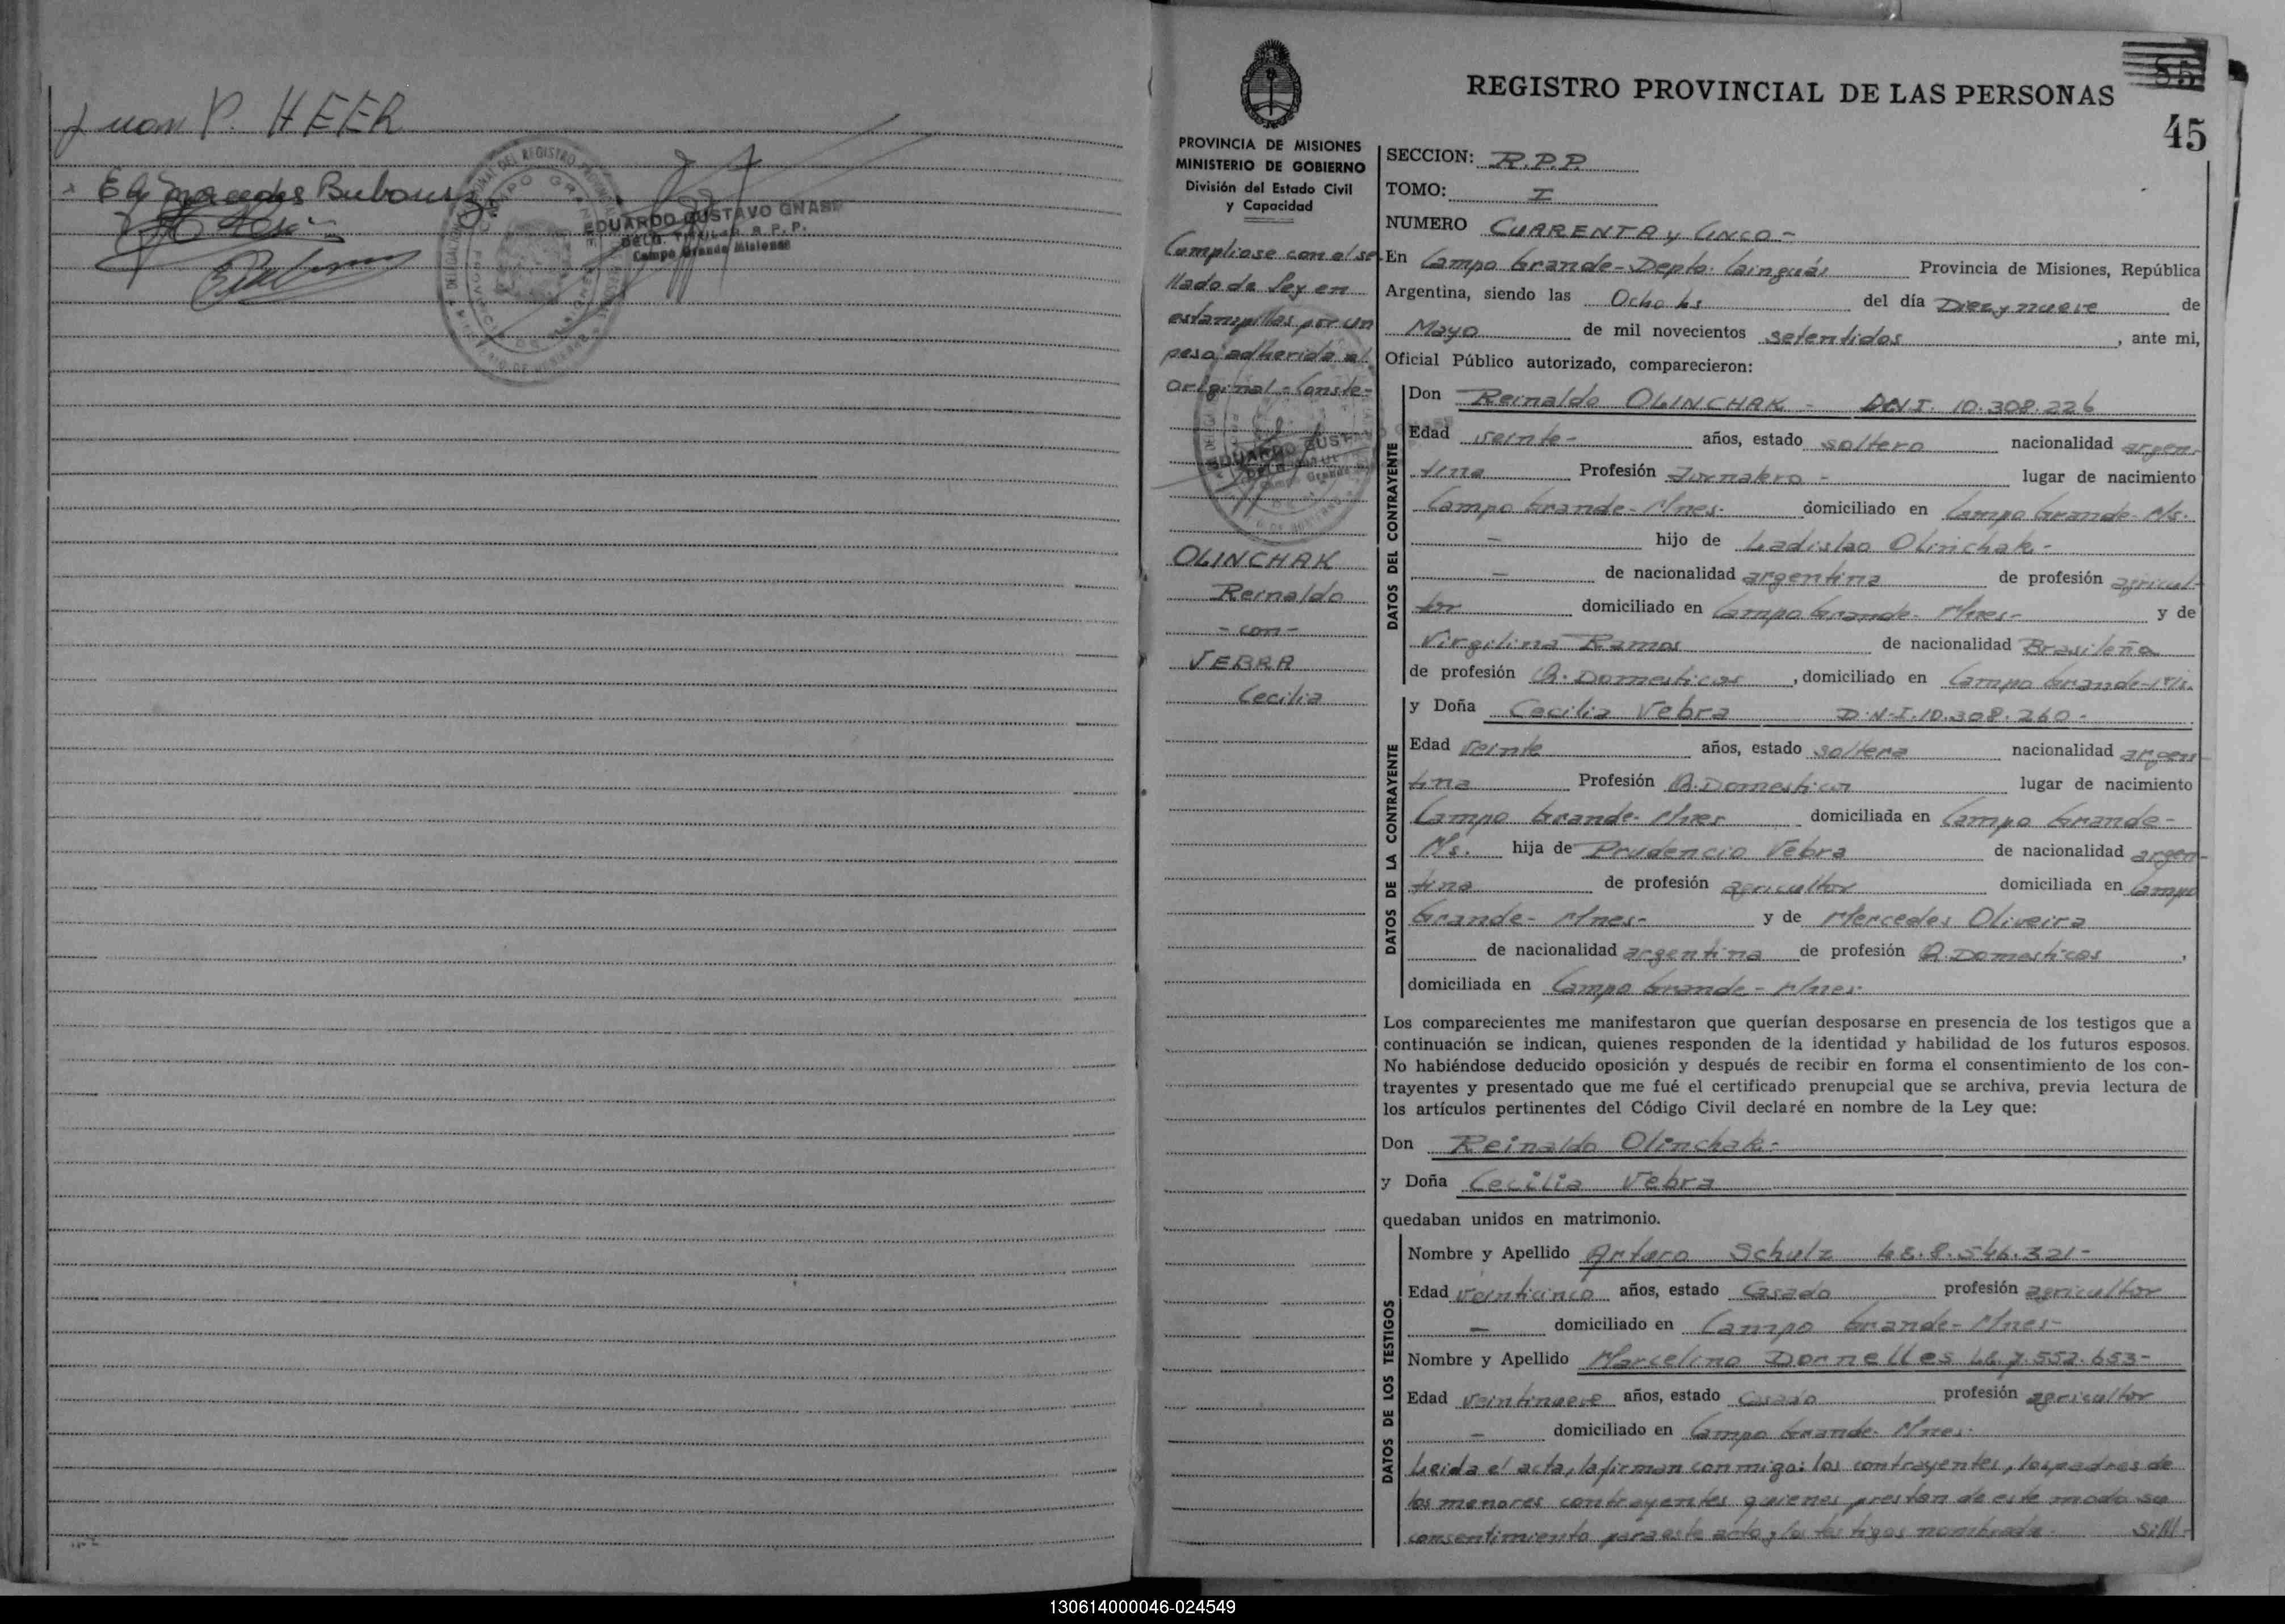 Juan P. HEER
EDUARDO GUSTAVO GNASS
DELG. TITULAR R. P. P.
Campo Grande Misiones
REGISTRO PROVINCIAL DE LAS PERSONAS
85
45
PROVINCIA DE MISIONES
MINISTERIO DE GOBIERNO
División del Estado Civil
y Capacidad
Cumpliose con el se
llado de Ley en
estampillas por un
peso adherida al
Original - Conste -
OLINCHAK
Reinaldo
- con -
VEBRA
Cecilia
SECCION: R.P.P.
TOMO: I
NUMERO CUARENTA y CINCO -
En Campo Grande - Depto. Cainguás Provincia de Misiones, República
Argentina, siendo las Ocho hs del día Diez y nueve de
Mayo de mil novecientos setentidos, ante mi,
Oficial Público autorizado, comparecieron:
DATOS DEL CONTRAYENTE
Don Reinaldo OLINCHAK - DNI. 10.308.226
Edad veinte - años, estado soltero nacionalidad argen-
tina Profesión Jornalero - lugar de nacimiento
Campo Grande - Mnes. domiciliado en Campo Grande - Ms.
- hijo de Ladislao Olinchak -
- de nacionalidad argentina de profesión agricul-
tor domiciliado en Campo Grande - Mnes - y de
Virgilina Ramos de nacionalidad Brasileña
de profesión Q. Domesticos, domiciliado en Campo Grande - Ms.
DATOS DE LA CONTRAYENTE
y Doña Cecilia Vebra D.N.I. 10.308.260 -
Edad veinte años, estado soltera nacionalidad argen
tina Profesión Q. Domesticos lugar de nacimiento
Campo Grande - Mnes domiciliada en Campo Grande -
Ms. hija de Prudencio Vebra de nacionalidad argen-
tina de profesión agricultor domiciliada en Campo
Grande - Mnes - y de Mercedes Oliveira
de nacionalidad argentina de profesión Q. Domesticos,
domiciliada en Campo Grande - Mnes.
Los comparecientes me manifestaron que querían desposarse en presencia de los testigos que a
continuación se indican, quienes responden de la identidad y habilidad de los futuros esposos.
No habiéndose deducido oposición y después de recibir en forma el consentimiento de los con-
trayentes y presentado que me fué el certificado prenupcial que se archiva, previa lectura de
los artículos pertinentes del Código Civil declaré en nombre de la Ley que:
Don Reinaldo Olinchak -
y Doña Cecilia Vebra
quedaban unidos en matrimonio.
DATOS DE LOS TESTIGOS
Nombre y Apellido Arturo Schulz L.E. 8.546.321 -
Edad veinticinco años, estado Casado profesión agricultor
- domiciliado en Campo Grande - Mnes -
Nombre y Apellido Marcelino Dornelles L.E. 7.552.653 -
Edad veintinueve años, estado Casado profesión agricultor
- domiciliado en Campo Grande - Mnes.
Leida el acta, la firman conmigo: los contrayentes, los padres de
los menores contrayentes quienes prestan de este modo su
consentimiento para este acto y los testigos nombrados.
130614000046-024549